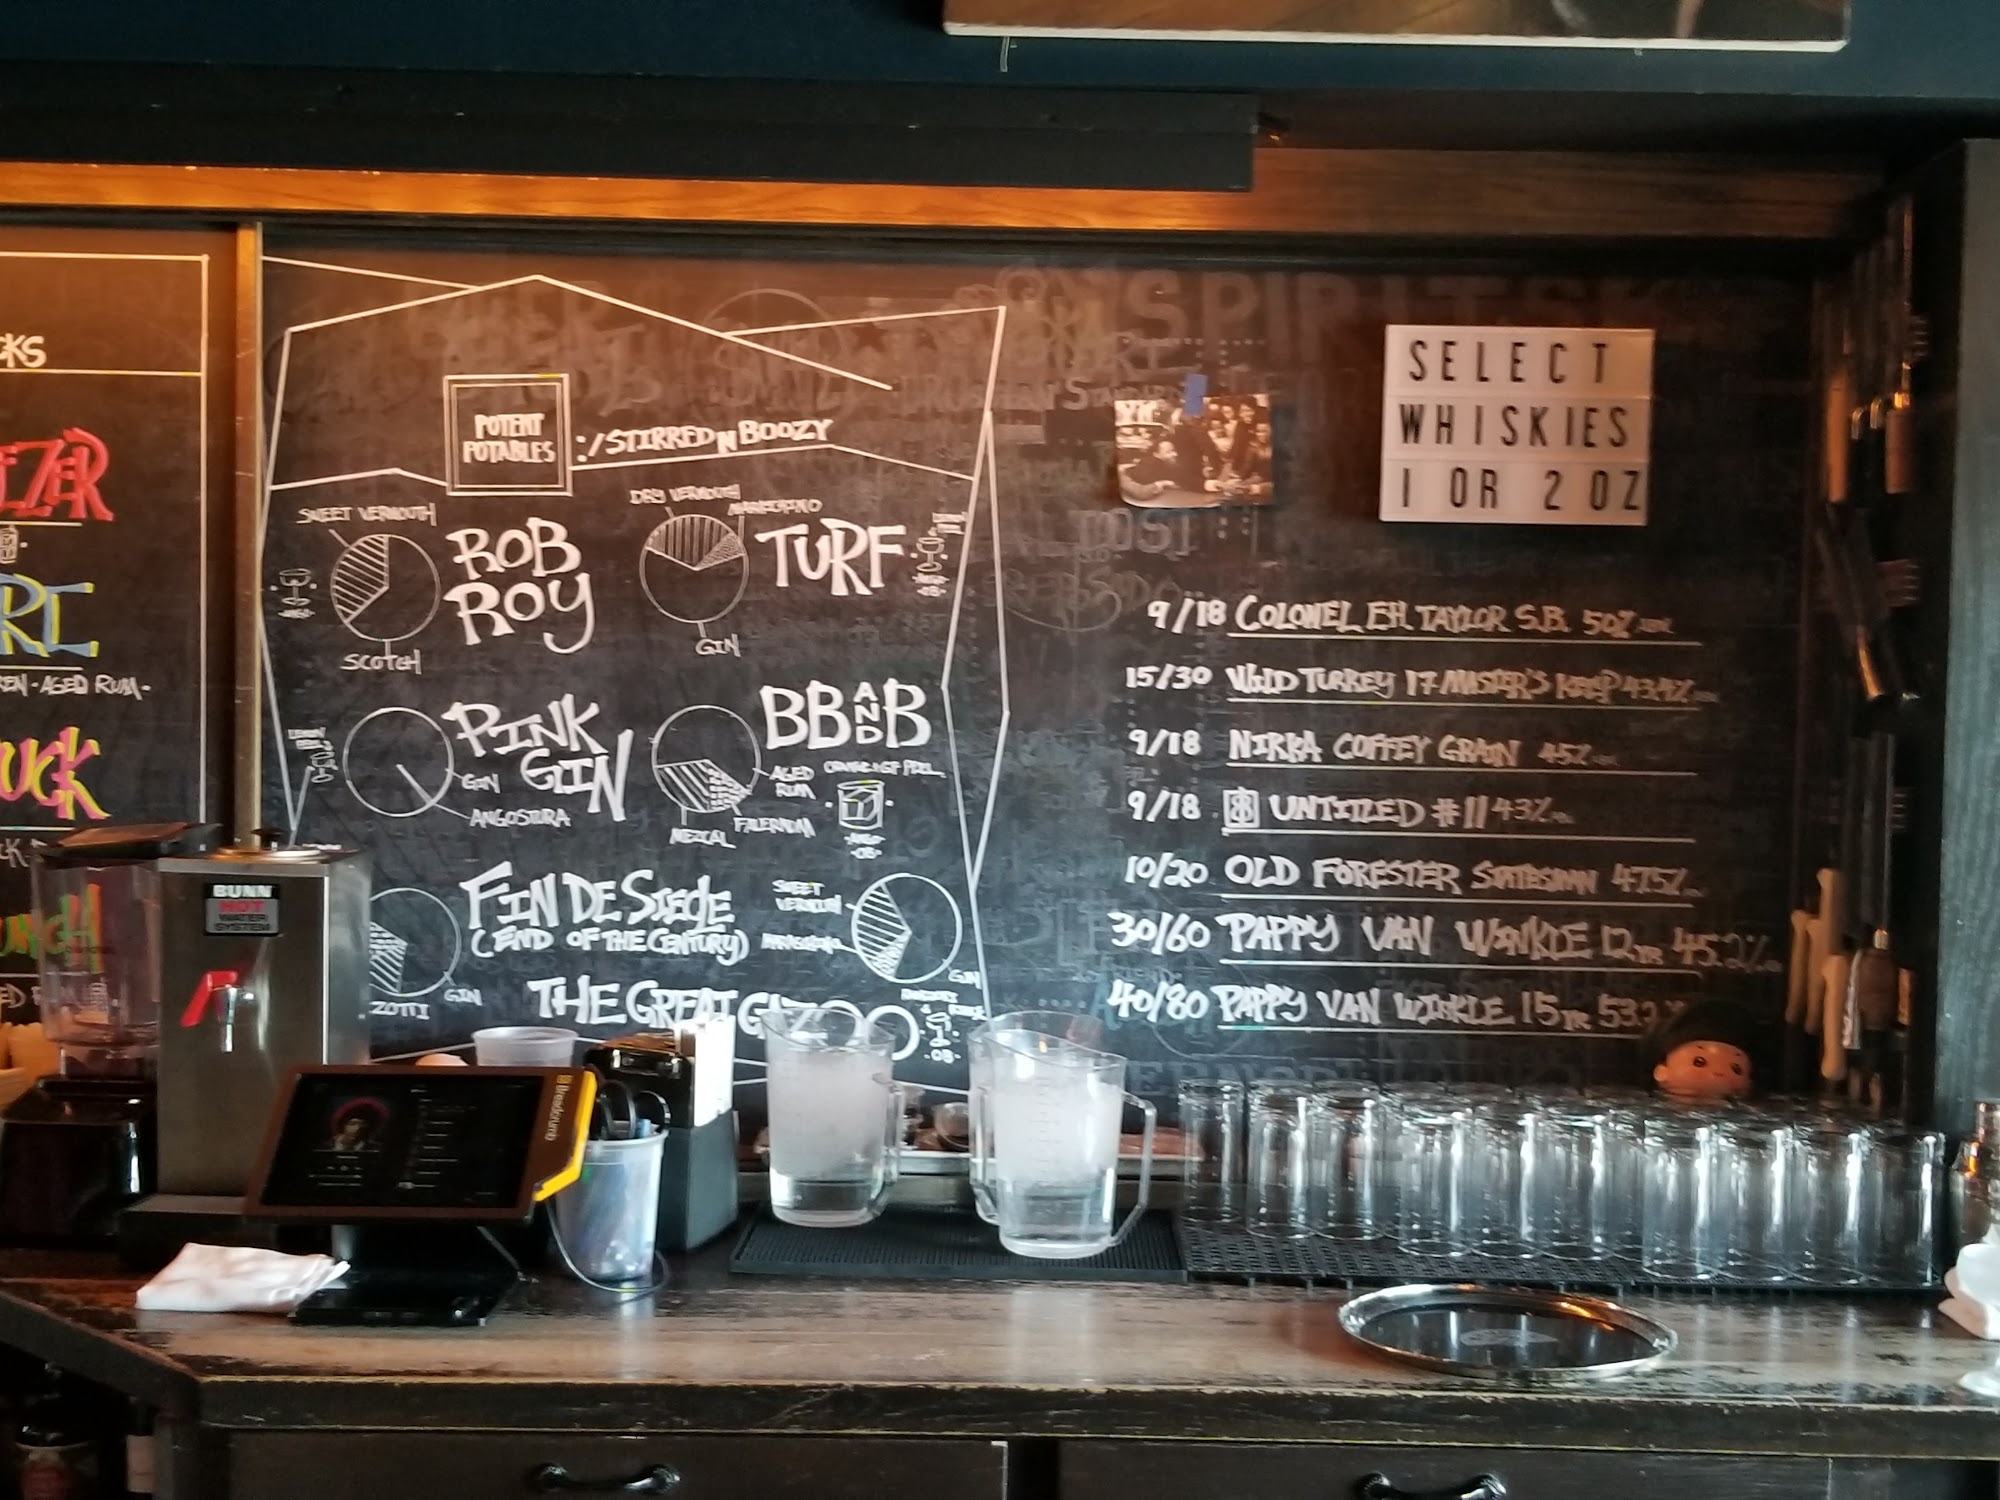 CKS
EZER
RI
EN - AGED RUM -
UCK
UNCH
POTENT
POTABLES
:/STIRRED N BOOZY
SWEET VERMOUTH
ROB
ROY
SCOTCH
DRY VERMOUTH
MARASCHINO
TURF
GIN
-ANGO-
-OB-
LEMON
PEEL
PINK
GIN
GIN
ANGOSTURA
BB AND B
AGED
RUM
FALERNUM
MEZCAL
ORANGE + GF PEEL
-ANGO-
-OB-
FIN DE SIECLE
(END OF THE CENTURY)
GIN
ZOTTI
SWEET
VERMOUTH
MARASCHINO
GIN
THE GREAT GAZOO
-OB-
SPIRITS
SELECT
WHISKIES
1 OR 2 OZ
9/18 COLONEL EH TAYLOR S.B. 50%
15/30 WILD TURKEY 17 MASTER'S KEEP 43.4%
9/18 NIKKA COFFEY GRAIN 45%
9/18 UNTITLED #11 43%
10/20 OLD FORESTER STATESMAN 47.5%
30/60 PAPPY VAN WINKLE 12YR 45.2%
40/80 PAPPY VAN WINKLE 15YR 53.2%
BUNN
HOT
WATER
SYSTEM
Breadcrumb